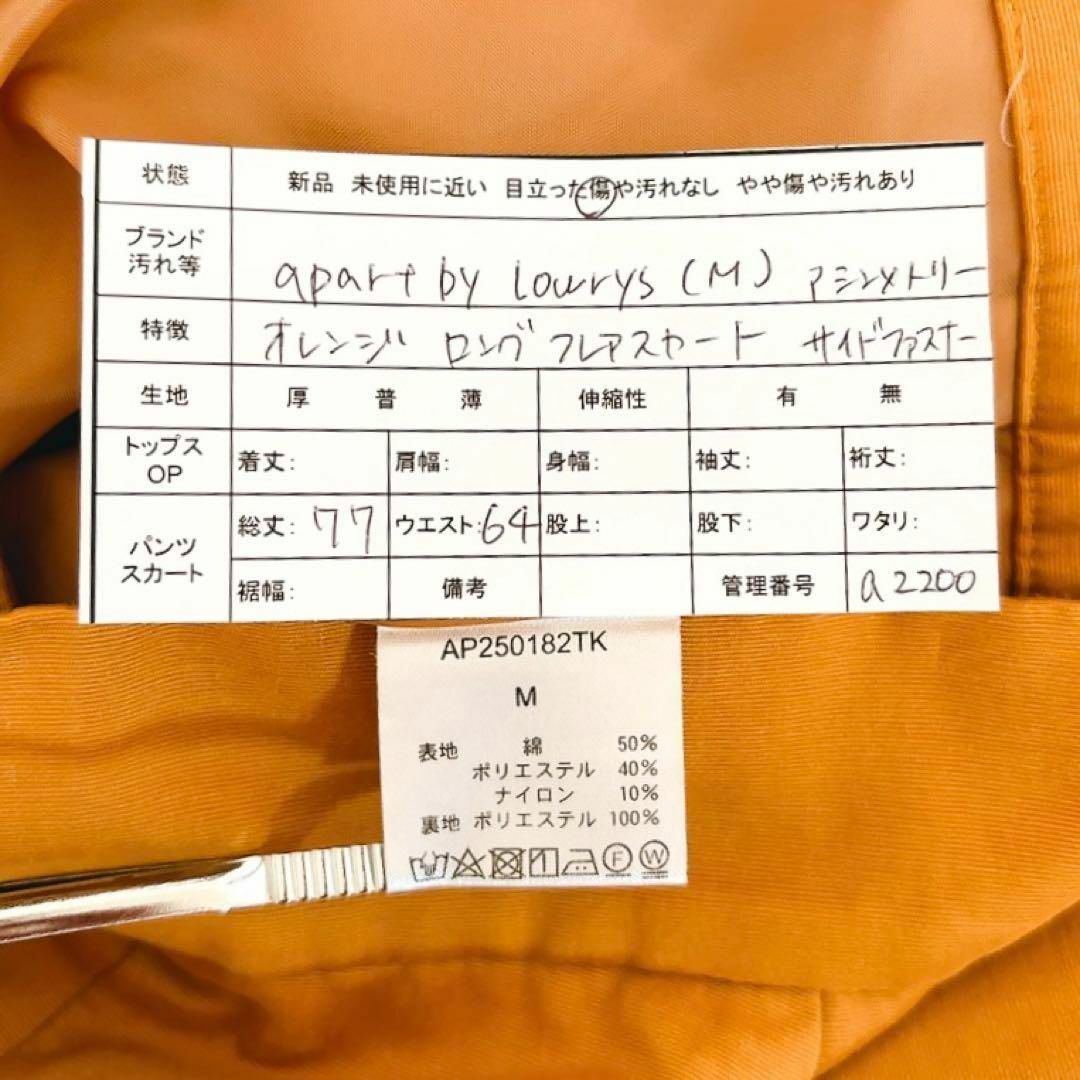 状態 新品 未使用に近い 目立った傷や汚れなし やや傷や汚れあり
ブランド
汚れ等
apart by lowrys (M) アシンメトリー
特徴 オレンジ ロング フレアスカート サイドファスナー
生地 厚 普 薄 伸縮性 有 無
トップス
OP
着丈: 肩幅: 身幅: 袖丈: 裄丈:
パンツ
スカート
総丈: 77 ウエスト: 64 股上: 股下: ワタリ:
裾幅: 備考 管理番号 a2200
AP250182TK
M
表地 綿 50%
ポリエステル 40%
ナイロン 10%
裏地 ポリエステル 100%
F W